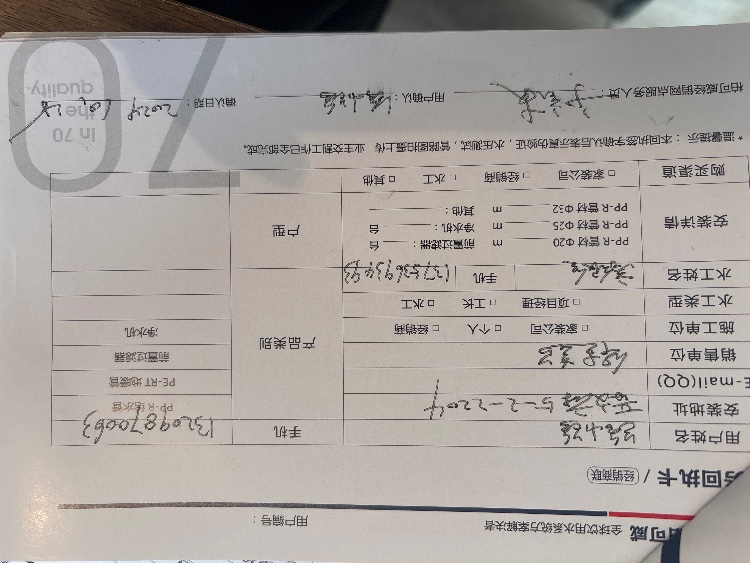 可威 全球饮用水系统方案解决者 用户编号：
务回执卡 / 经销商联
用户姓名 手机 13209870063
安装地址 5-2-2204 PP-R给水管
E-mail(QQ) PE-RT地暖管
销售单位 前置过滤器
施工单位 □ 家装公司 □ 个人 □ 经销商 产品类别 净水机
水工类型 □ 项目经理 □ 工长 □ 水工
水工姓名 手机 13753693493
安装详情 PP-R 管材 Φ20 m 前置过滤器： 台 户型
PP-R 管材 Φ25 m 净水机： 台
PP-R 管材 Φ32 m 其他：
购买渠道 □ 家装公司 □ 经销商 □ 水工 □ 其他
*温馨提示：本回执签字确认后表示真伪验证，水压测试，管路图拍摄上传 业主交割工作已全部完成。
柏可威经销网点服务人员： 用户确认： 确认日期：2024
In 70
the
quality.
70